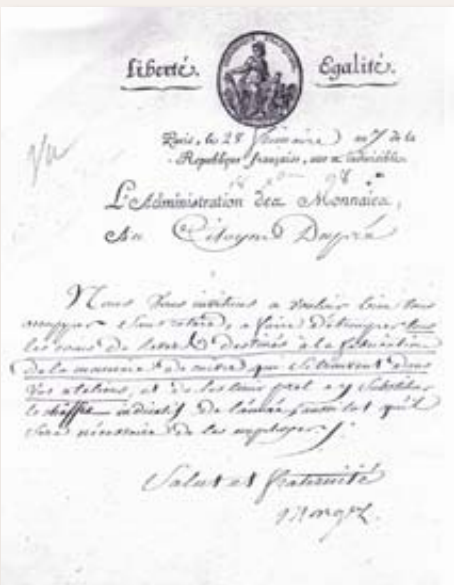 Liberté. Egalité.
Paris, le 28 frimaire an 7 de la
République française, une et indivisible.
L'Administration des Monnaies,
Au Citoyen Dupré
Nous vous invitons a vouloir bien vous
occuper sans retard, a faire détremper tous
les de destinés à la fabrication
de la monnaie de cuivre qui se trouvent dans
vos ateliers, et de les tenir pret a y substituer
le chiffre indicatif de l'année, aussitot qu'il
sera nécessaire de les employer.
Salut et fraternité
Mongez.